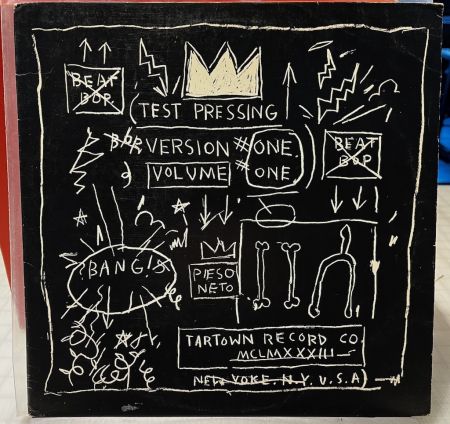 BEAT
BOP
(TEST PRESSING
VERSION #ONE
VOLUME #ONE
BEAT
BOP
BANG!
PESO
NETO
TARTOWN RECORD CO
MCLMXXXIII
NEW YORK, N.Y. U.S.A)